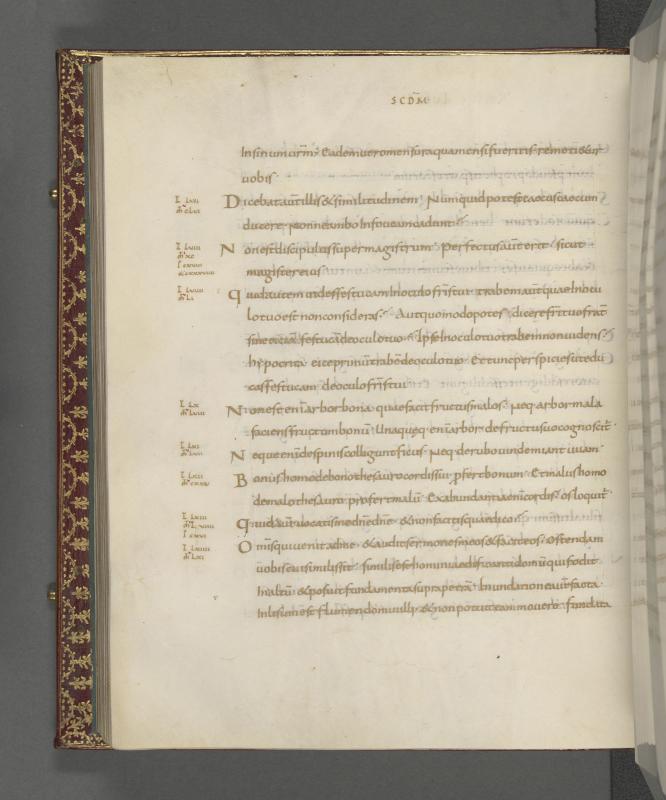 SCDM
In sinum urm; Eadem uero mensura qua mensi fueritis remetietur
uobis
Dicebat aut illis & similitudinem; Numquid potest caecus caecum
ducere; Nonne ambo in foueam cadunt
Non est discipulus super magistrum; Perfectus aut erit sicut
magister eius
Quid autem uides festucam in oculo fris tui trabem aut quae in oculo
tuo est non consideras; Aut quomodo potes dicere fri tuo frat
sine eiciam festucā de oculo tuo; Ipse in oculo tuo trabem non uidens;
hypocrita eice primū trabē de oculo tuo Et tunc perspicies ut edu
cas festucam de oculo fris tui
Non est enī arbor bona quae facit fructus malos; Neq arbor mala
faciens fructum bonū; Unaquęq enī arbor de fructu suo cognoscit
Neque enī de spinis colligunt ficus Neq de rubo uindemiant uuam
Bonus homo de bono thesauro cordis sui pfert bonum; Et malus homo
de malo thesauro profert malū; Ex abundantia enī cordis os loquit
Quid aut uocatis me dne dne & non facitis quae dico
Omnis qui uenit ad me & audit sermones meos & facit eos; ostendam
uobis cui similis sit similis est homini aedificanti domū qui fodit
In altū & posuit fundamenta supra petrā Inundatione aut facta
Inlisum est flumen domui illi & non potuit eam mouere fundata